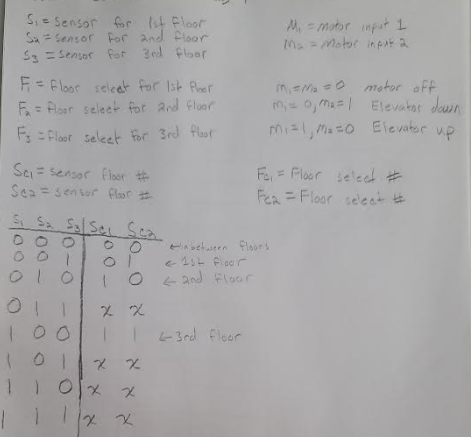 S1 = Sensor for 1st Floor
S2 = Sensor for 2nd floor
S3 = Sensor for 3rd floor
M1 = motor input 1
M2 = Motor input 2
F1 = Floor select for 1st floor
F2 = floor select for 2nd floor
F3 = floor select for 3rd floor
m1=m2=0 motor off
m1=0, m2=1 Elevator down
m1=1, m2=0 Elevator up
Sc1 = sensor floor #
Sc2 = sensor floor #
Fc1 = Floor select #
Fc2 = Floor select #
S1 S2 S3 Sc1 Sc2
0 0 0 0 0 ← inbetween floors
0 0 1 0 1 ← 1st floor
0 1 0 1 0 ← 2nd floor
0 1 1 x x
1 0 0 1 1 ← 3rd floor
1 0 1 x x
1 1 0 x x
1 1 1 x x